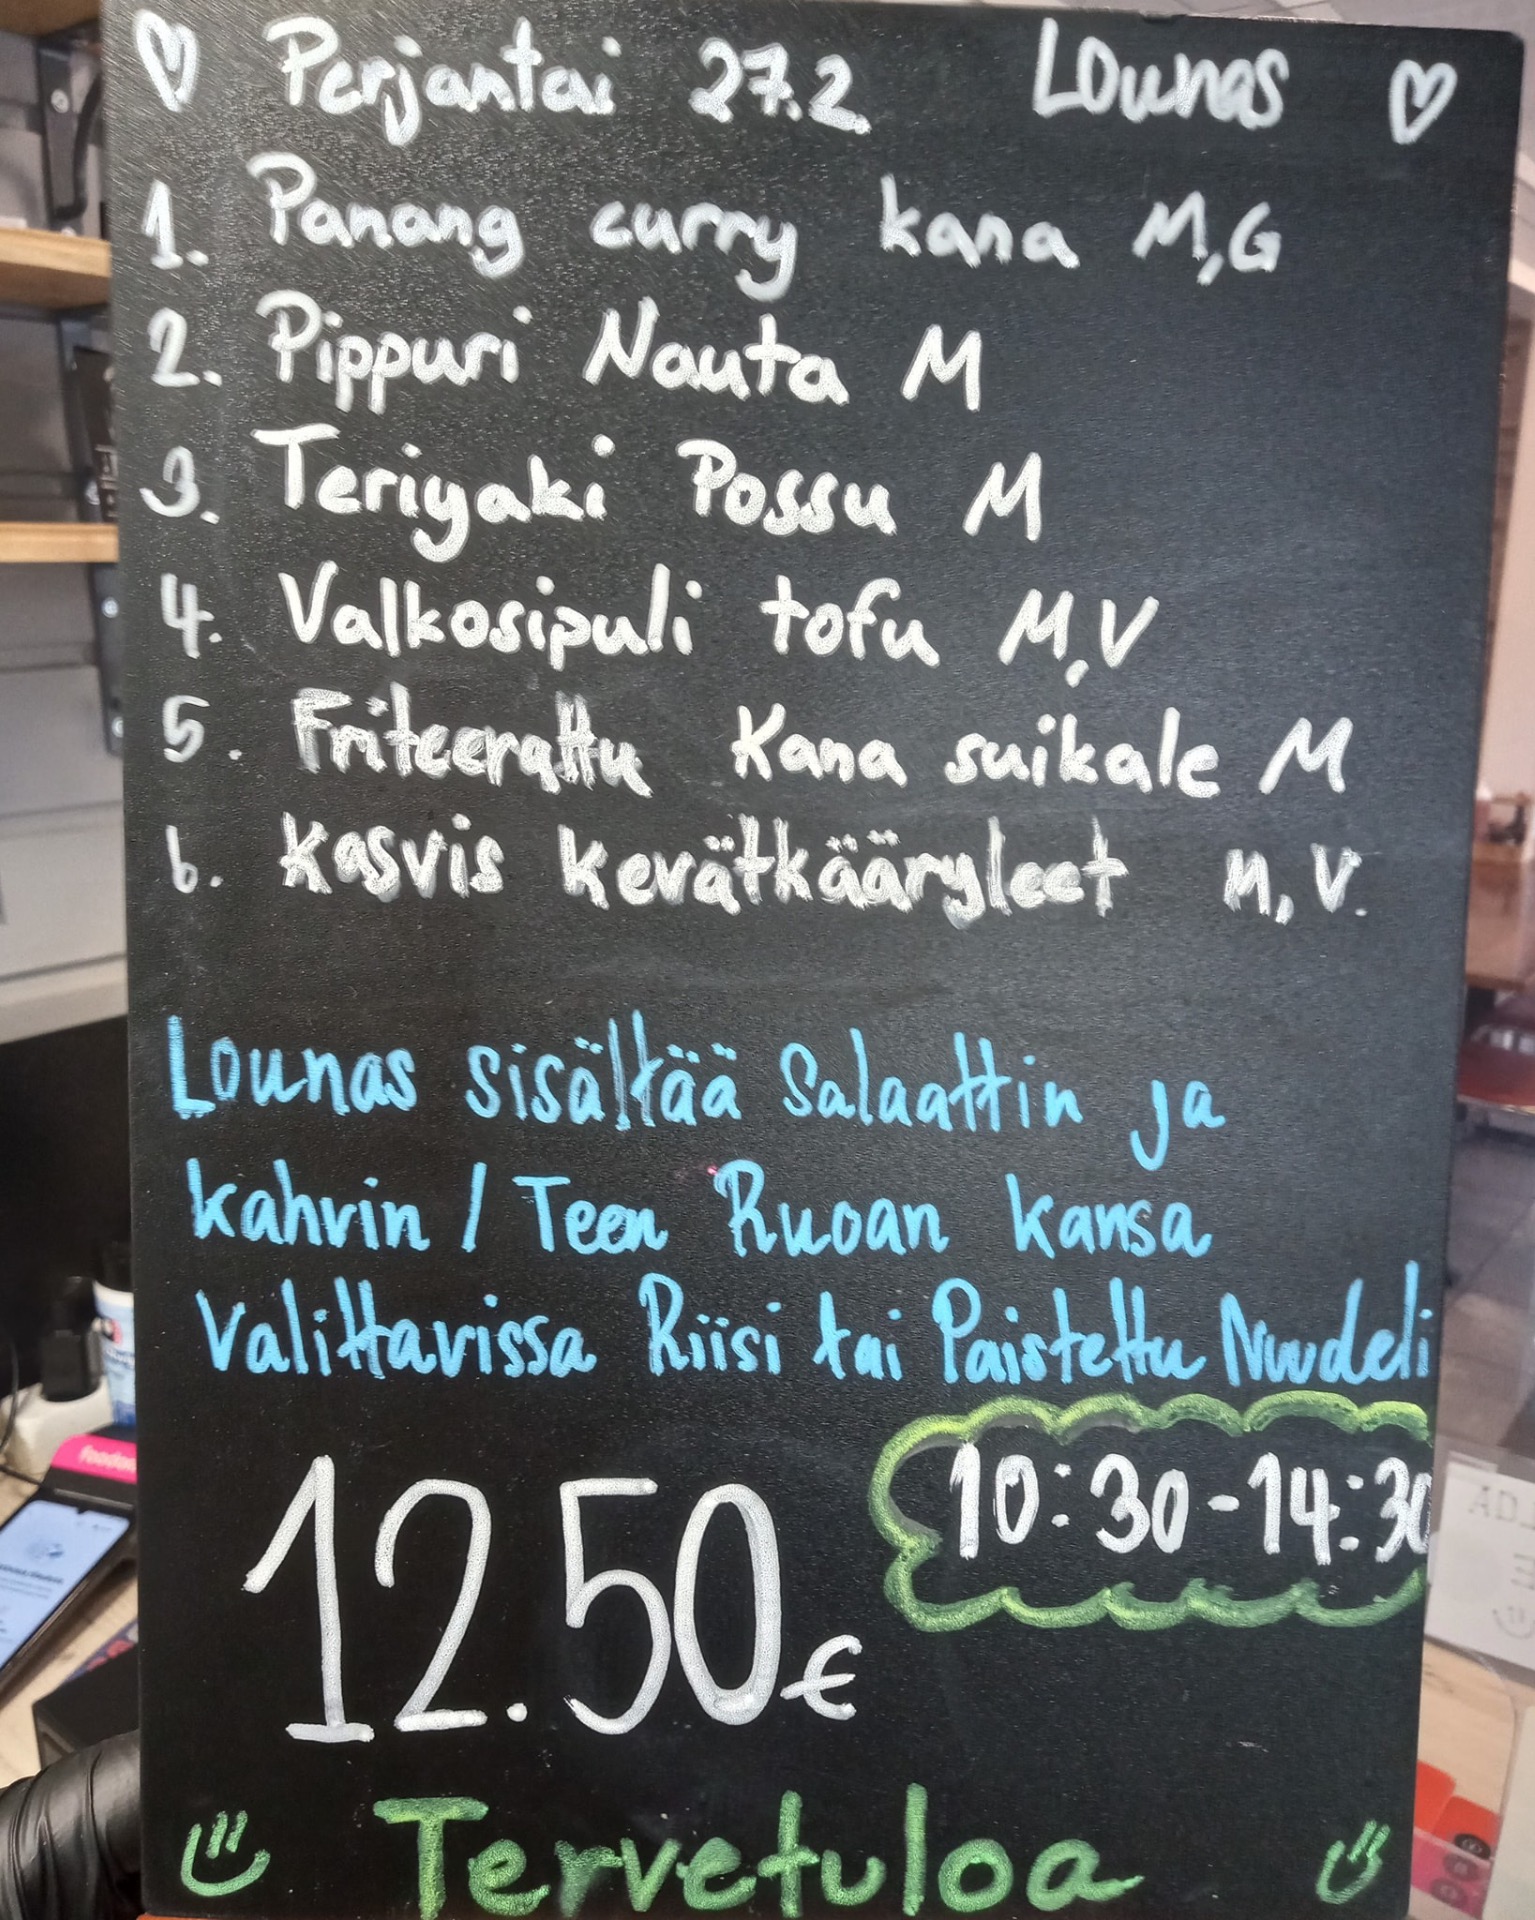 Perjantai 27.2 Lounas
1. Panang curry kana M,G
2. Pippuri Nauta M
3. Teriyaki Possu M
4. Valkosipuli tofu M,V
5. Friteerattu Kana suikale M
6. Kasvis kevätkääryleet M, V.
Lounas sisältää Salaattin ja
kahvin / Teen Ruoan kansa
Valittavissa Riisi tai Paistettu Nuudeli
10:30-14:30
12.50€
Tervetuloa